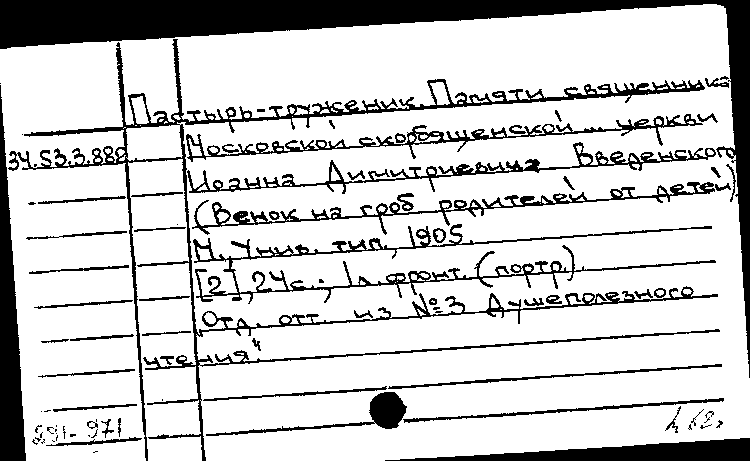 Пастырь-труженик. Памяти священника
34.53.3.882 Московской скорбященской ... церкви
Иоанна Димитриевича Введенского
(Венок на гроб родителей от детей)
М., Унив. тип., 1905.
[2], 24 с.; 1 л. фронт. (портр.).
„Отд. отт. из №3 Душеполезного
чтения“.
291-971